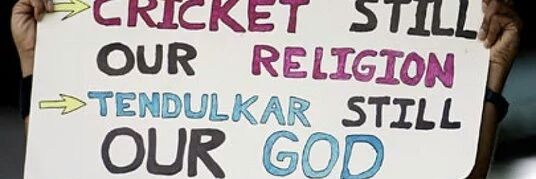 CRICKET STILL
OUR RELIGION
TENDULKAR STILL
OUR GOD